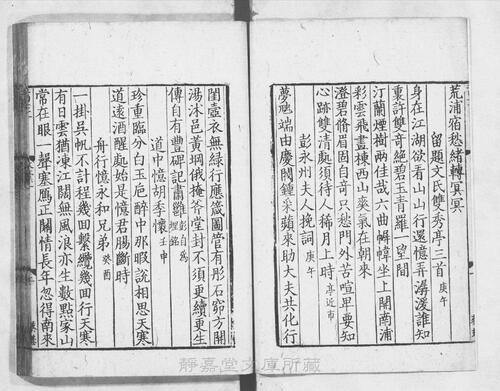 荒浦宿愁緒轉冥冥
留題文氏雙秀亭三首 庚午
身在江湖欲看山山行還憶弄潺湲誰知
裏許雙奇絕碧玉青羅一望間
汀蘭煙樹兩佳哉六曲幈幃坐上開南浦
彩雲飛畫棟西山爽氣在朝來
澄碧脩眉固自奇只愁門外苦喧卑要知
心跡雙清處須待人稀月上時 亭近市
彭永州夫人挽詞 庚午
夢虺端由慶閥鍾采蘋來助大夫共化行
閨壼衣無綠行應箴圖管有彤石窌方開
湯沐邑黃堈俄掩斧堂封不須更續更生
傳自有豐碑記書雝 彭伯爲埋銘
道中憶胡季懷 壬申
珍重臨分白玉巵醉中那暇說相思天寒
道遠酒醒處始是憶君腸斷時
舟行憶永和兄弟 癸酉
一掛吳帆不計程幾回繫纜幾回行天寒
有日雲猶凍江闊無風浪亦生數點家山
常在眼一聲寒鴈正關情長年忽得南來
靜嘉堂文庫所藏